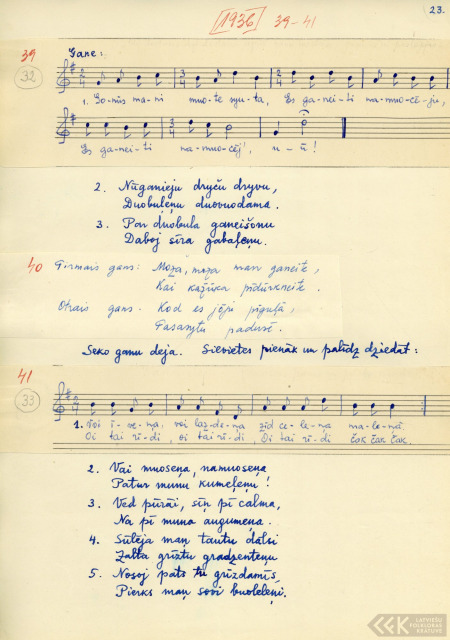 23.
[1936] 39-41
39
32
Gane:
1. Go-nūs ma-ni muo-te syu-ta, Es ga-nei-ti na-muo-cē-ju,
Es ga-nei-ti na-muo-cēj', u-ū!
2. Nūganieju dryču dryvu,
Duobuļeņu duovuodama.
3. Par duobula ganeišonu
Daboj sīra gabaļeņu.
40
Pirmais gans: Moza, moza man ganeite,
Kai kažūka pīdūrkneite.
Otrais gans. Kod es jōji pīguļā,
Pasasytu padusē.
Seko ganu deja. Sievietes pienāk un palīdz dziedāt:
41
33
1. Voi ī-ve-ņa, voi laz-de-ņa zid ce-le-ņa ma-le-ņā.
Oi tai rī-di, oi tai rī-di, Oi tai rī-di čak čak čak.
2. Vai muoseņa, namuoseņa
Patur munu kumeļeņu!
3. Ved pūrai, sīņ pī calma,
Na pī muna augumeņa.
4. Sūtēja maņ tautu dālsi
Zalta grīztu gradzenteņu
5. Nosoj pats tu grīzdamīs,
Pierks maņ sovi buoleleņi.
LATVIEŠU
FOLKLORAS
KRĀTUVE